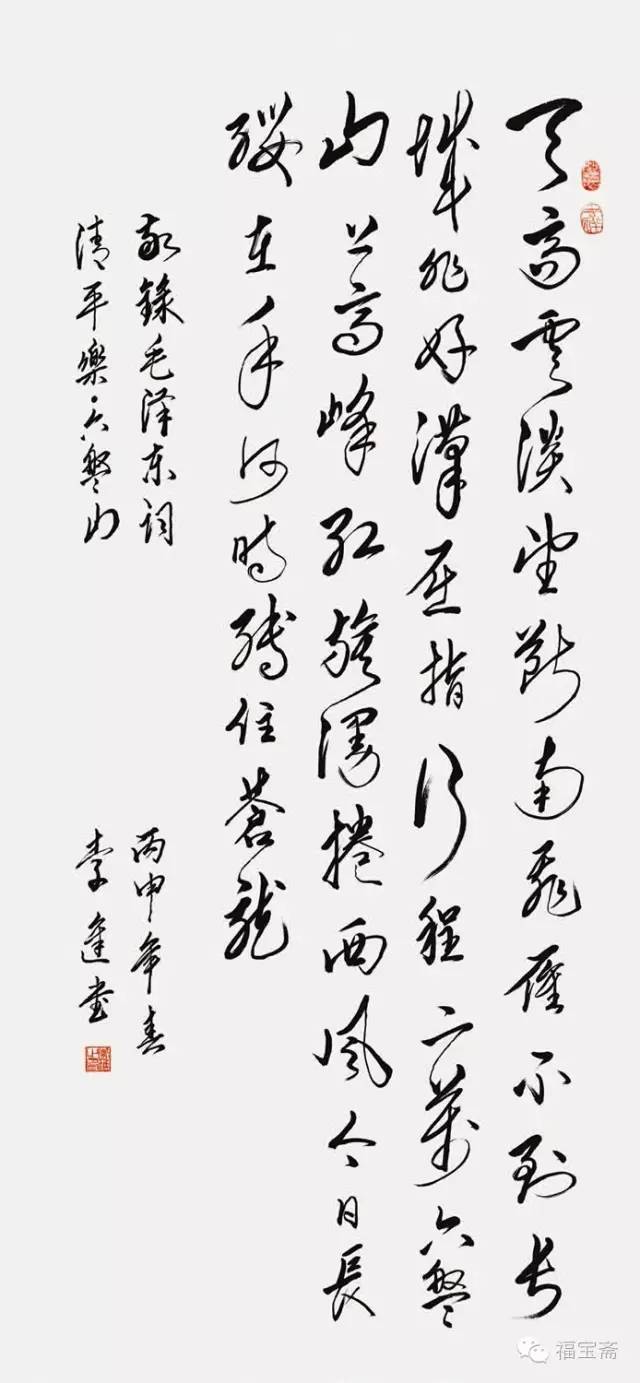 天高雲淡望斷南飛雁不到長
城非好漢屈指行程二萬六盤
山上高峰紅旗漫捲西風今日長
纓在手何時縛住蒼龍
敬錄毛泽东词
清平樂·六盤山
丙申年春
李書
福宝斋